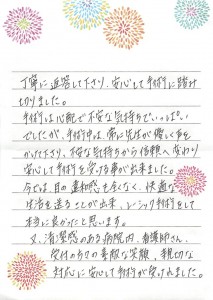 丁寧に返答して下さり、安心して手術に踏み
切りました。
手術は心配で不安な気持ちでいっぱい
でしたが、手術中は、常に先生が優しく声を
かけて下さり、不安な気持ちから信頼へ変わり
安心して手術を受ける事が出来ました。
今では、目の違和感も全くなく、快適な
生活を送ることが出来、レーシック手術をして
本当に良かったと思います。
又、清潔感のある病院内、看護師さん、
受付の方の素敵な笑顔、親切な
対応に安心して手術が受けれました。